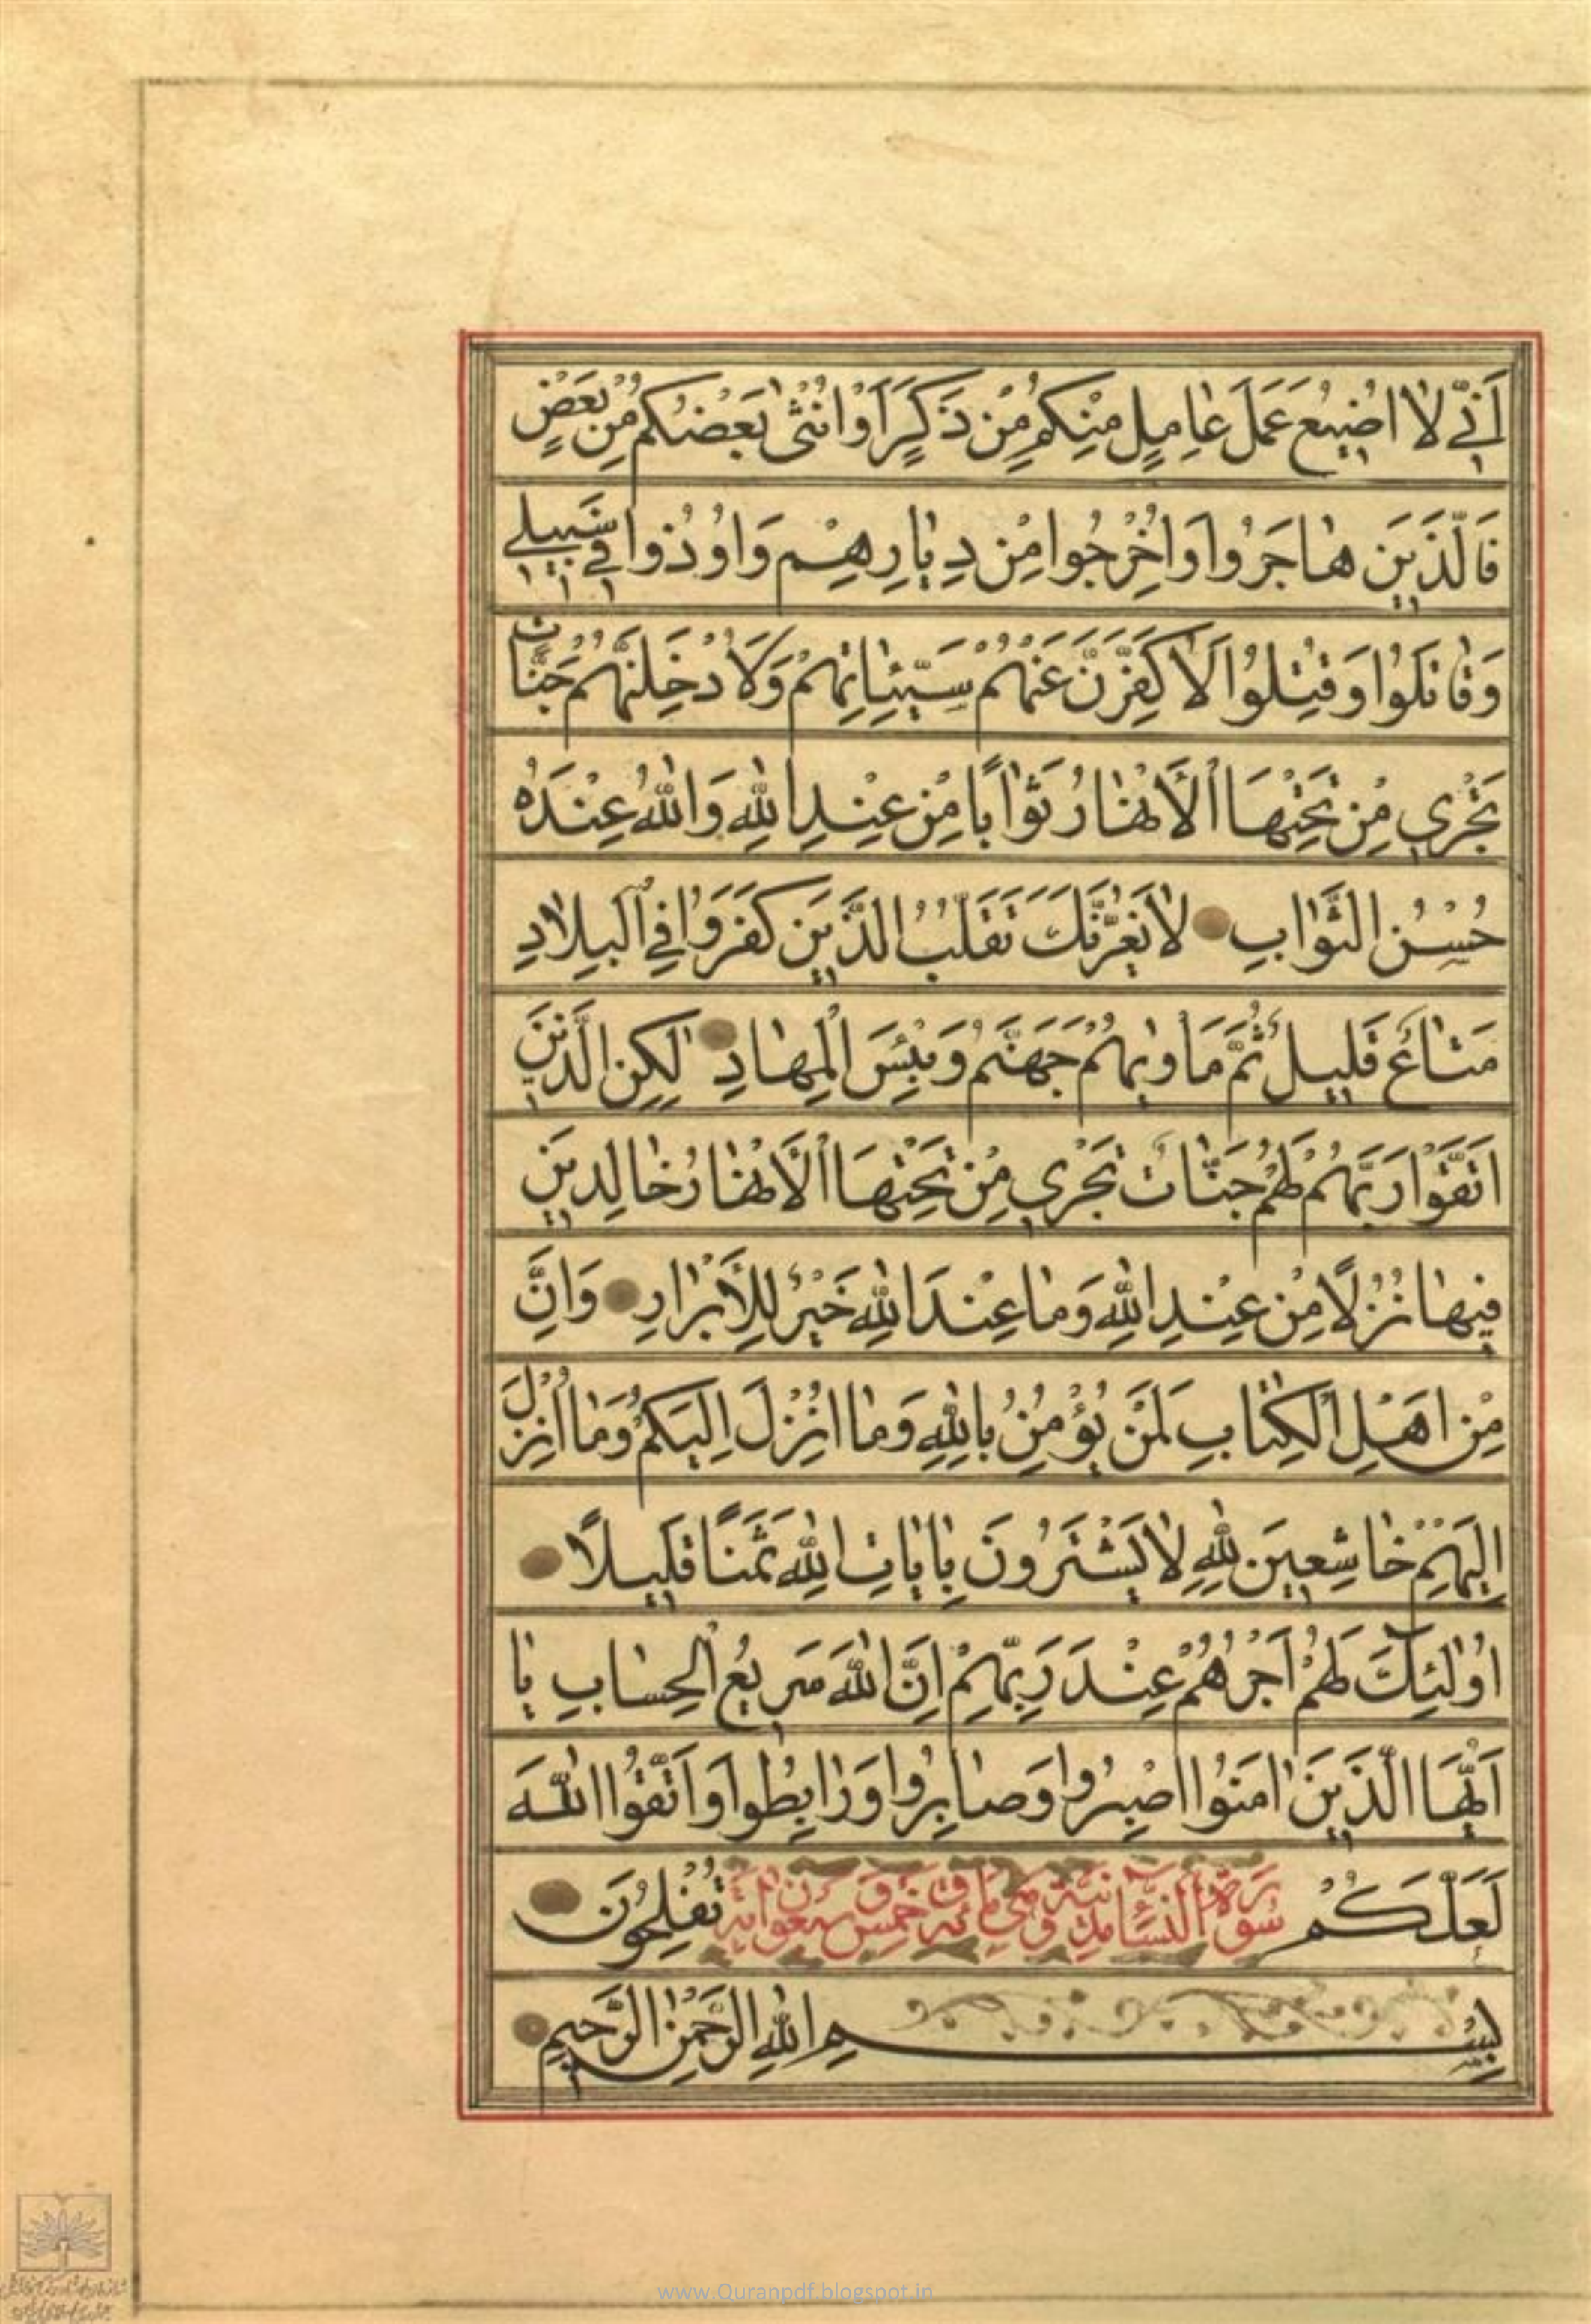 أَنِّي لَا اُضِيعُ عَمَلَ عَامِلٍ مِنْكُمْ مِنْ ذَكَرٍ اَوْ اُنْثٰى بَعْضُكُمْ مِنْ بَعْضٍ
فَالَّذِينَ هَاجَرُوا وَاُخْرِجُوا مِنْ دِيَارِهِمْ وَاُوذُوا فِي سَبِيلِي
وَقَاتَلُوا وَقُتِلُوا لَاُكَفِّرَنَّ عَنْهُمْ سَيِّئَاتِهِمْ وَلَاُدْخِلَنَّهُمْ جَنَّاتٍ
تَجْرِي مِنْ تَحْتِهَا الْأَنْهَارُ ثَوَابًا مِنْ عِنْدِ اللّٰهِ وَاللّٰهُ عِنْدَهُ
حُسْنُ الثَّوَابِ لَا يَغُرَّنَّكَ تَقَلُّبُ الَّذِينَ كَفَرُوا فِي الْبِلَادِ
مَتَاعٌ قَلِيلٌ ثُمَّ مَأْوٰيهُمْ جَهَنَّمُ وَبِئْسَ الْمِهَادِ لٰكِنِ الَّذِينَ
اتَّقَوْا رَبَّهُمْ لَهُمْ جَنَّاتٌ تَجْرِي مِنْ تَحْتِهَا الْأَنْهَارُ خَالِدِينَ
فِيهَا نُزُلًا مِنْ عِنْدِ اللّٰهِ وَمَا عِنْدَ اللّٰهِ خَيْرٌ لِلْأَبْرَارِ وَاِنَّ
مِنْ اَهْلِ الْكِتَابِ لَمَنْ يُؤْمِنُ بِاللّٰهِ وَمَا اُنْزِلَ اِلَيْكُمْ وَمَا اُنْزِلَ
اِلَيْهِمْ خَاشِعِينَ لِلّٰهِ لَا يَشْتَرُونَ بِاٰيَاتِ اللّٰهِ ثَمَنًا قَلِيلًا
اُولٰئِكَ لَهُمْ اَجْرُهُمْ عِنْدَ رَبِّهِمْ اِنَّ اللّٰهَ سَرِيعُ الْحِسَابِ يَا
اَيُّهَا الَّذِينَ اٰمَنُوا اصْبِرُوا وَصَابِرُوا وَرَابِطُوا وَاتَّقُوا اللّٰهَ
لَعَلَّكُمْ تُفْلِحُونَ
سُورَةُ النِّسَاءِ مَدَنِيَّةٌ وَهِيَ مِائَةٌ وَ خَمْسٌ وَ سَبْعُونَ اٰيَةً
بِسْمِ اللّٰهِ الرَّحْمٰنِ الرَّحِيمِ
www.Quranpdf.blogspot.in